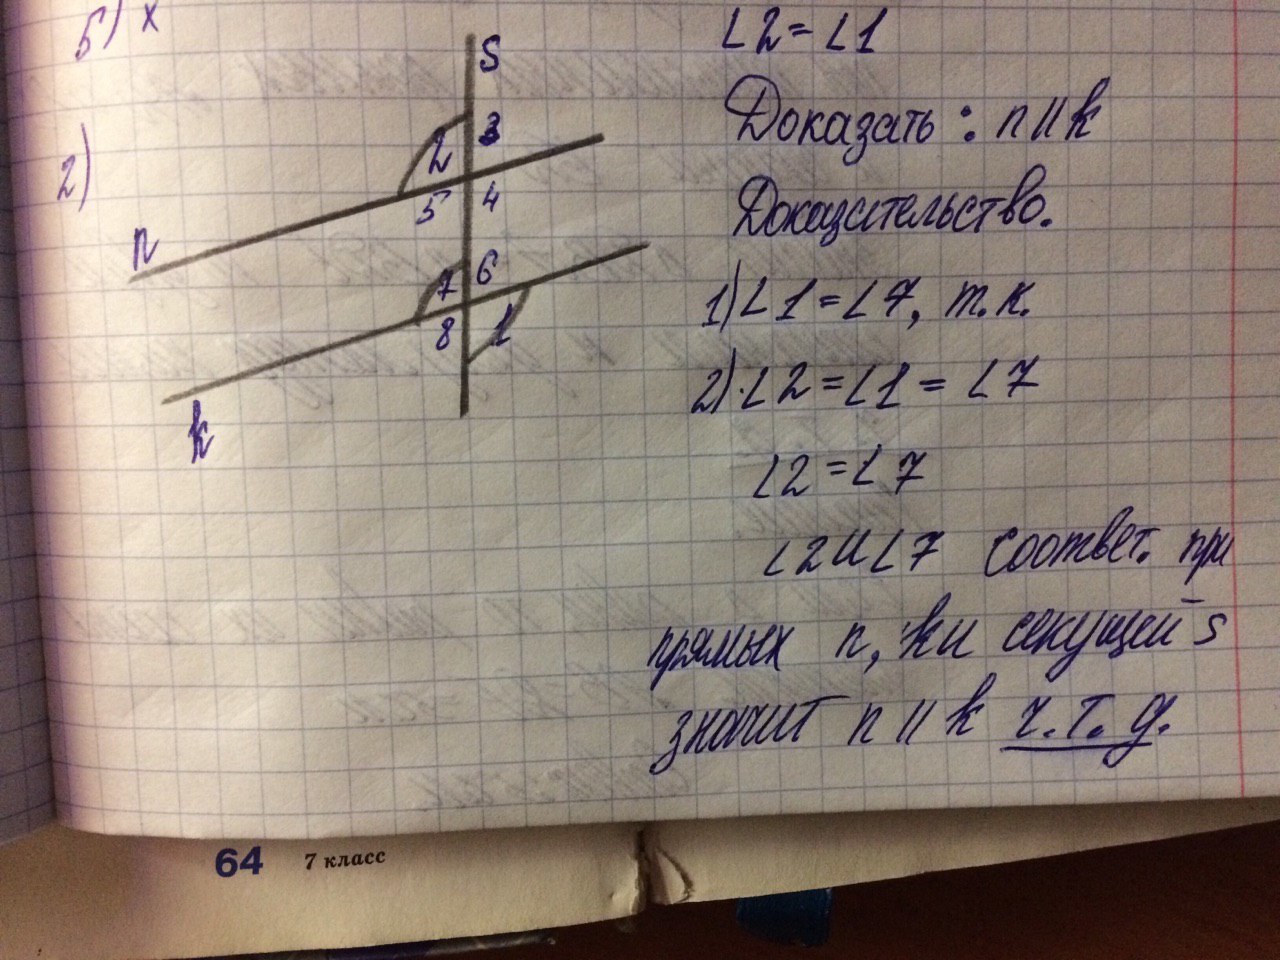 5) x
∠2 = ∠1
2)
S
2 3
5 4
n
7 6
8 1
k
Доказать: n || k
Доказательство.
1) ∠1 = ∠7, т.к.
2) ∠2 = ∠1 = ∠7
∠2 = ∠7
∠2 и ∠7 соответ. при
прямых n, k и секущей s
значит n || k ч.т.д.
64 7 класс